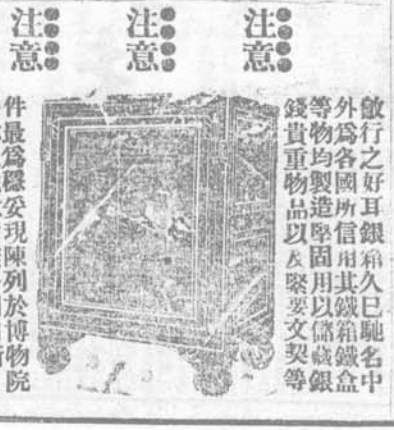 注意
注意
注意
敝行之好耳銀箱久已馳名中
外爲各國所信用其鐵箱鐵盒
等物均製造堅固用以儲藏銀
錢貴重物品以及緊要文契等
件最爲穩妥現陳列於博物院